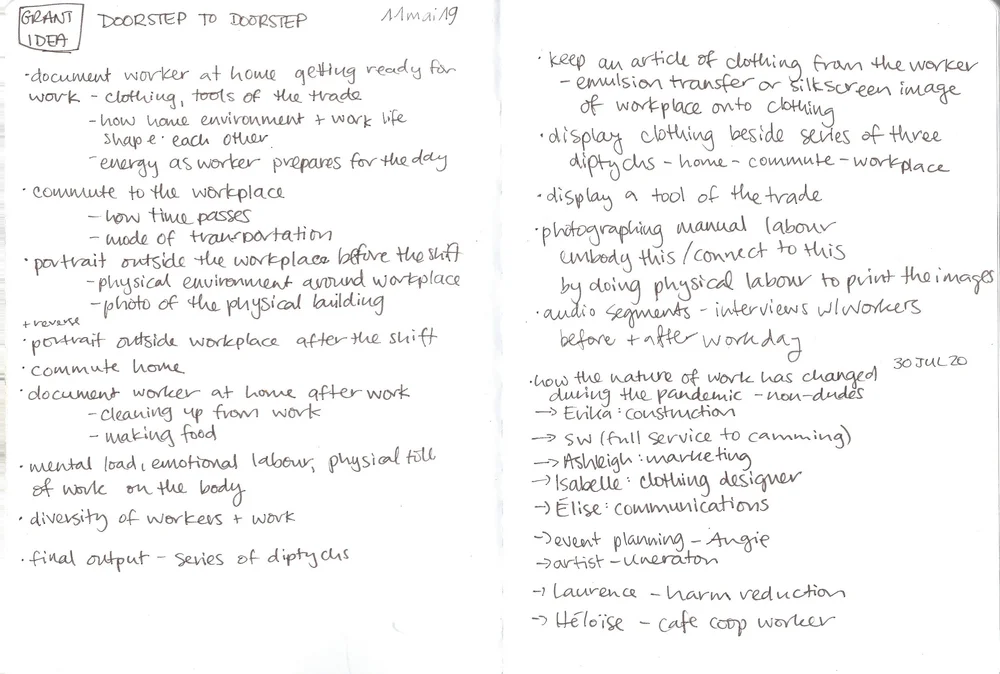 GRANT
IDEA
DOORSTEP TO DOORSTEP
11 mai 19
• document worker at home getting ready for
work - clothing, tools of the trade
- how home environment + work life
shape • each other
- energy as worker prepares for the day
• commute to the workplace
- how time passes
- mode of transportation
• portrait outside the workplace before the shift
- physical environment around workplace
- photo of the physical building
+ reverse
• portrait outside workplace after the shift
• commute home
• document worker at home after work
- cleaning up from work
- making food
• mental load, emotional labour, physical toll
of work on the body
• diversity of workers + work
• final output - series of diptychs
• keep an article of clothing from the worker
- emulsion transfer or silkscreen image
of workplace onto clothing
• display clothing beside series of three
diptychs - home - commute - workplace
• display a tool of the trade
• photographing manual labour
embody this / connect to this
by doing physical labour to print the images
• audio segments - interviews w/workers
before + after workday
30 JUL 20
• how the nature of work has changed
during the pandemic - non-dudes
→ Erika : construction
→ SW (full service to camming)
→ Ashleigh : marketing
→ Isabelle : clothing designer
→ Élise : communications
→ event planning - Angie
→ artist -
→ Laurence - harm reduction
→ Héloïse - cafe coop worker